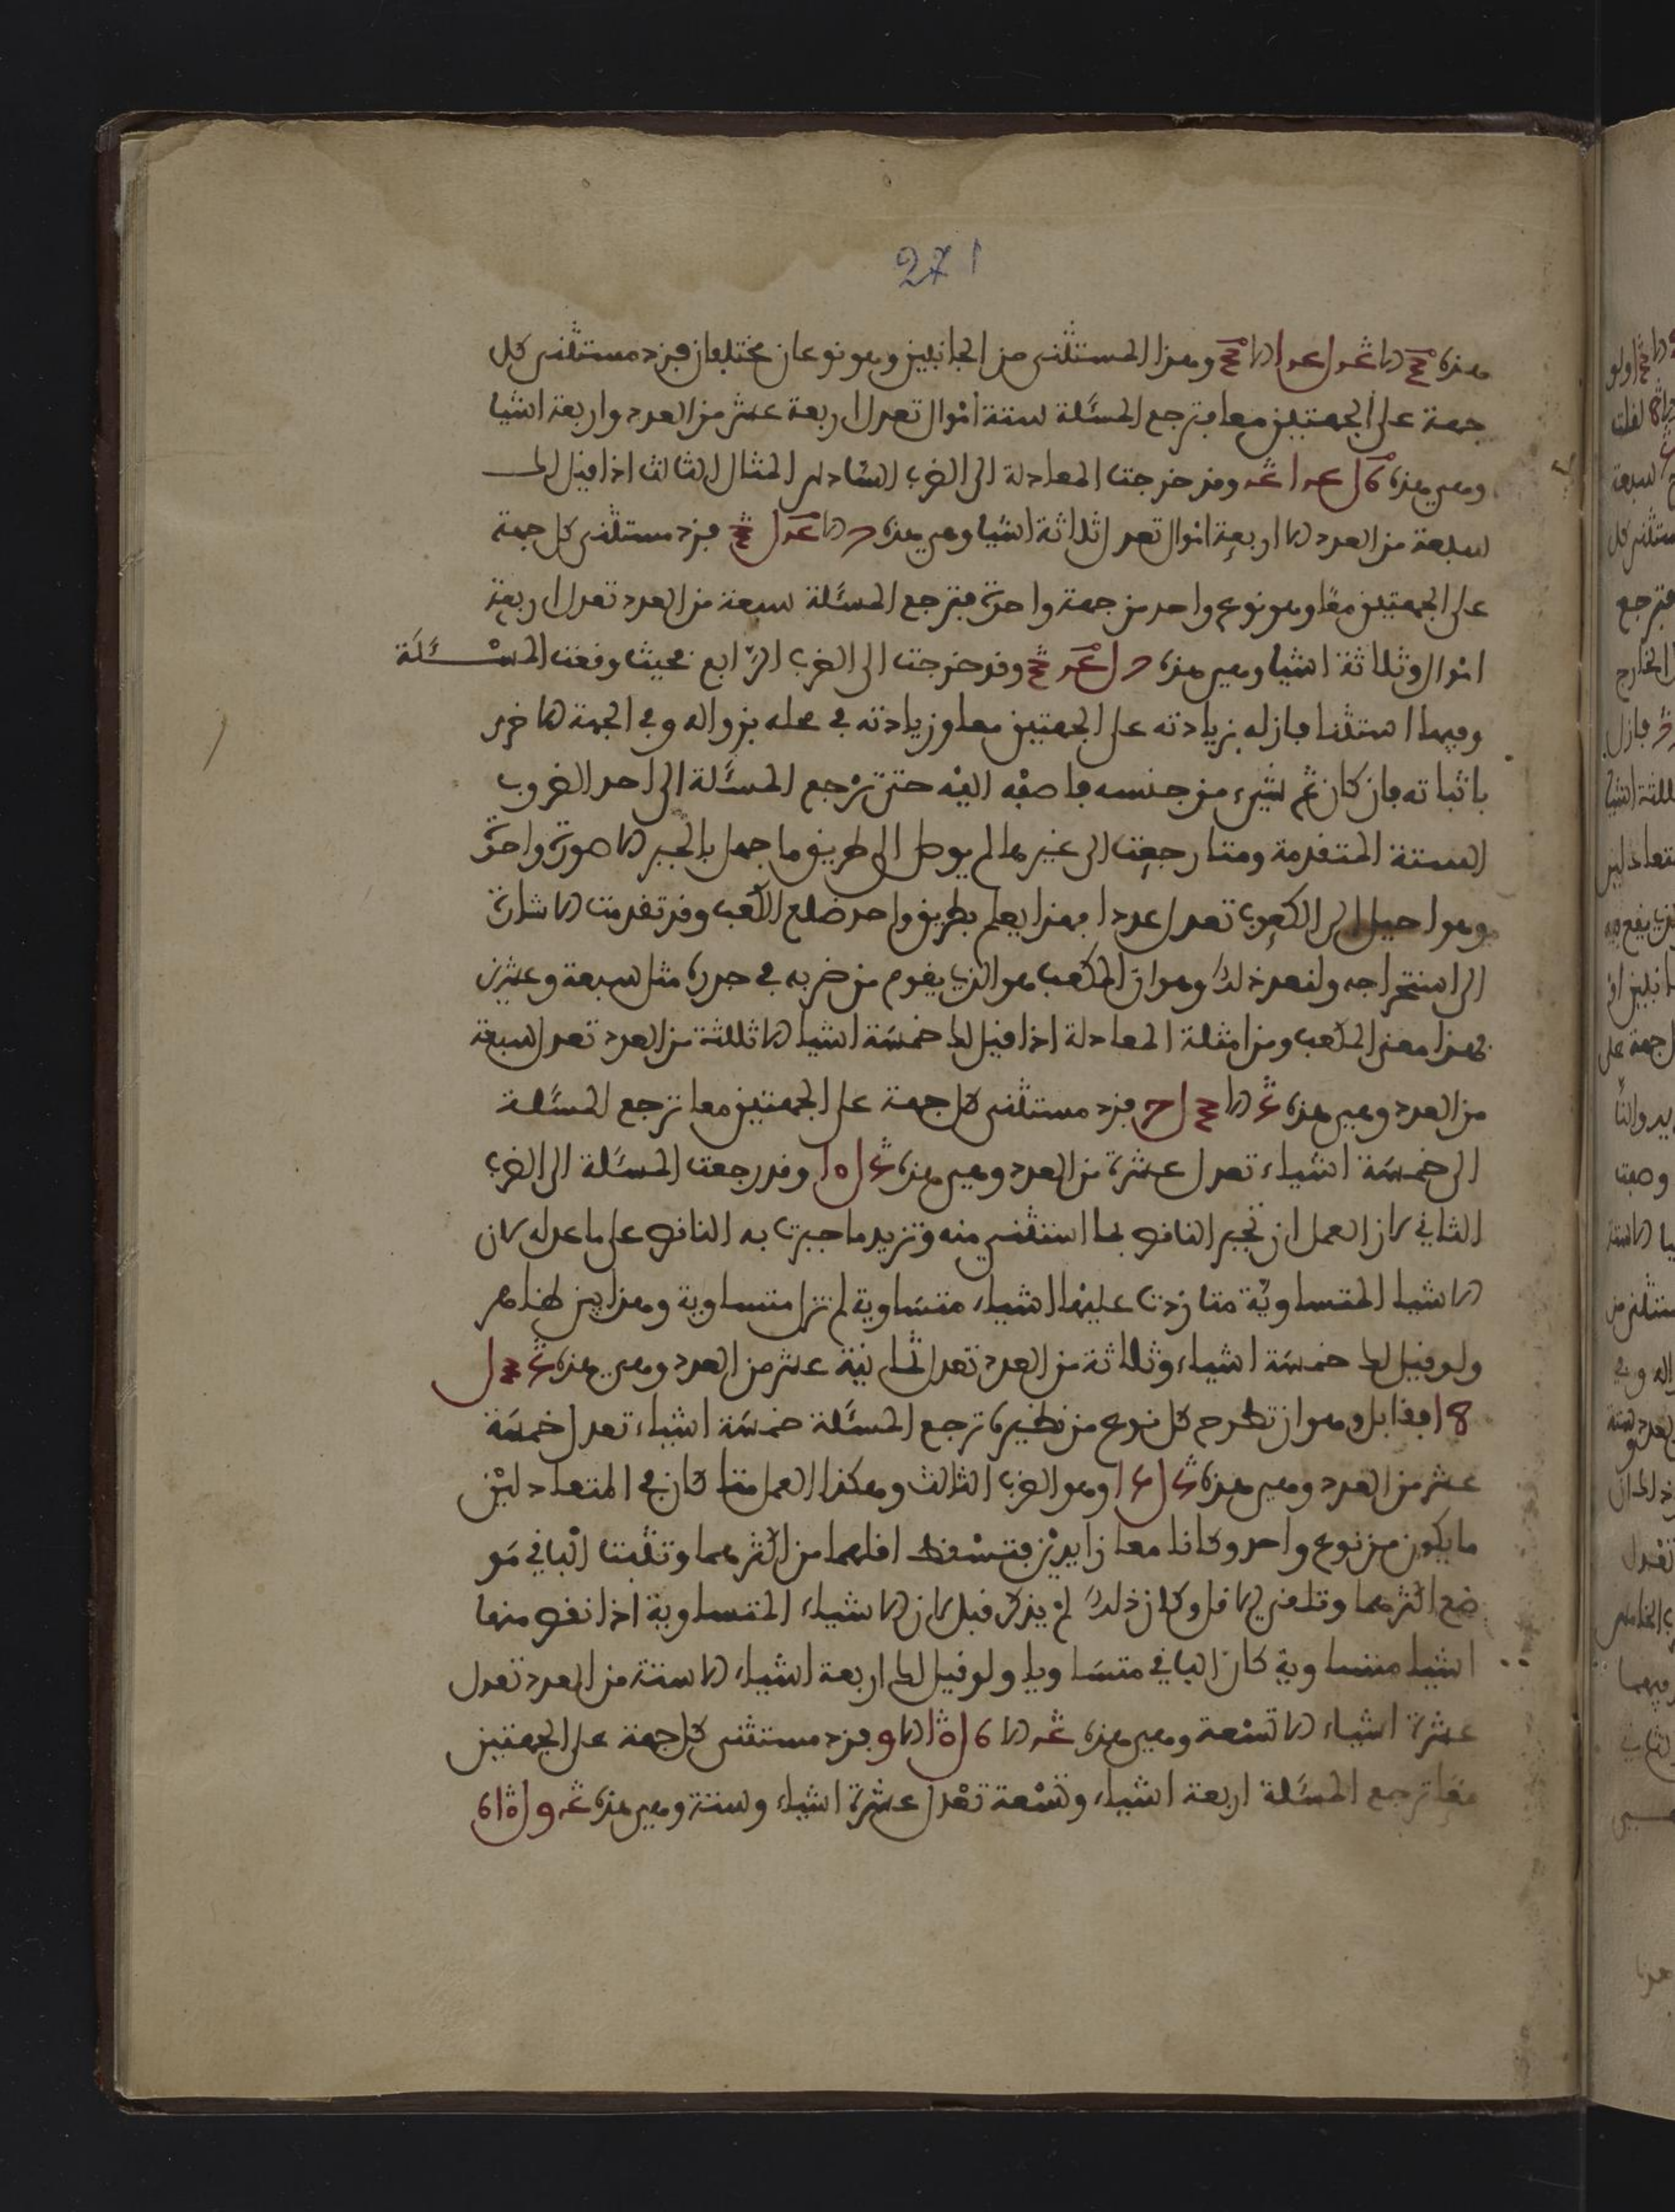 271
هذه وهذا المستثنى من الجانبين وهو نوعان مختلفان فزد مستثنى كل
جهة على الجهتين معا فترجع المسئلة ستة أموال تعدل اربعة عشر من العدد واربعة اشيا
وهي هذه وقد خرجت المعادلة الى الضرب السادس المثال الثالث اذا قيل لك
سبعة من العدد الا اربعة اموال تعدل الا ثلاثة اشيا وهي هذه فزد مستثنى كل جهة
على الجهتين معًا وهو نوع واحد من جهة واحدة فترجع المسئلة سبعة من العدد تعدل اربعة
اموال وثلاثة اشيا وهي هذه وقد خرجت الى الضرب الرّابع فحيث وقعت المسْـئَلَة
وفيها استثنا فازله بزيادته على الجهتين معا وزيادته في محله بزواله وفي الجهة الاخرى
باثباته فان كان ثم شيء من جنسه فاضفْه اليْه حتى ترْجع المسئلة الى احد الضروب
الستة المتقدمة ومتا رجعت الى غيرها لم يوصل الى طريق ما جهل بالجبر الا صورة واحدة
وهو الكعوب تعدل عددا فهذا يعلم بطريق واحد ضلع المكعب وقد تقدمت الاشارة
الى استخراجه ولنعد ذلك وهو ان المكعب هو الذي يقوم من ضربه في جدره مثل سبعة وعشرين
فهذا معنى المكعب ومن امثلة المعادلة اذا قيل لك خمسة اشيا الا ثلثة من العدد تعدل سبعة
من العدد وهي هذه فزد مستثنى كل جهة على الجهتين معا ترجع المسئلة
الى خمسة اشياء تعدل عشرة من العدد وهي هذه وقد رجعت المسئلة الى الضرب
الثاني لان العمل ان تجبر الناقص بما استثني منه وتزيد ما جبرت به الناقص على ما عدله لان
الاشيا المتساويّة متا زدت عليْها اشياء متساوية لم تزل متساوية وهذا بين ظاهر
ولو قيل لك خمسة اشياء وثلاثة من العدد تعدل ثمانية عشر من العدد وهي هذه
18 فقابل وهو ان تطرح كل نوع من نظيره ترجع المسئلة خمسة اشياء تعدل خمسة
عشر من العدد وهي هذه وهو الضرب الثالث وهكذا العمل متا كان في المتعادليْن
ما يكون من نوع واحد وكانا معا زايديْن فتسْقط اقلهما من اكثرهما وتثبت الباقي مَو
ضع اكثرهما وتلغي الاقل وكان ذلك لمْ يذكر قبل لان الاشياء المتساوية اذا نقص منها
اشيا متساوية كان الباقي متساويا ولو قيل لك اربعة اشياء الا ستة من العدد تعدل
عشرة اشياء الا تسْعة وهي هذه فزد مستثنى كل جهة على الجهتين
معًا ترجع المسئلة اربعة اشياء وتسْعة تعْدل عشْرة اشياء وستة وهي هذه